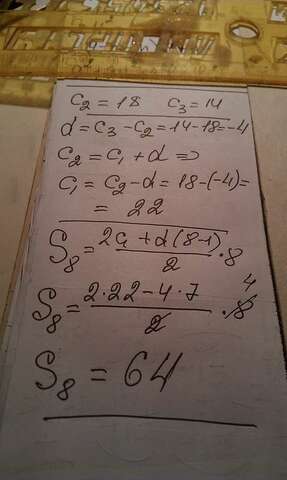 c₂ = 18 c₃ = 14
d = c₃ - c₂ = 14 - 18 = -4
c₂ = c₁ + d ⇒
c₁ = c₂ - d = 18 - (-4) =
= 22
S₈ = (2c₁ + d(8-1))/2 · 8
S₈ = (2·22 - 4·7)/2 · 8 4
S₈ = 64